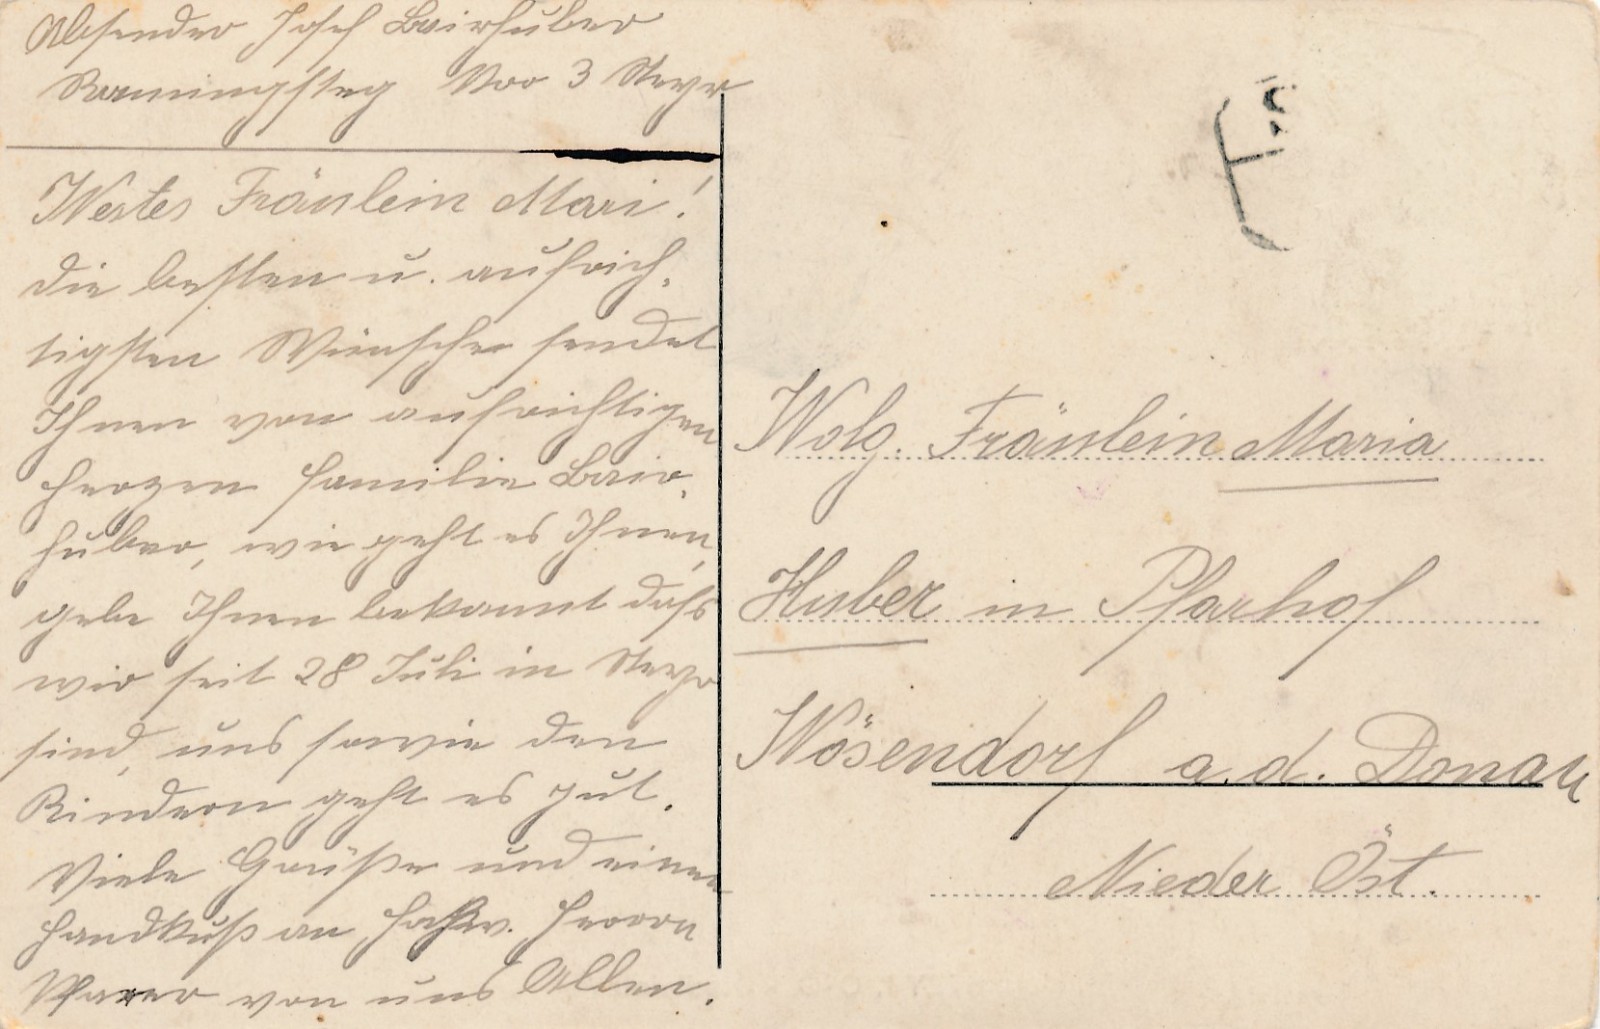 Absender Josef Bairhuber
Ramingsteg Nro 3 Steyr
Wertes Fräulein Mari!
die besten u. aufrich-
tigsten Wünsche sendet
Ihnen von aufrichtigen
Herzen Familie Bair-
huber, wie geht es Ihnen,
gebe Ihnen bekannt daß
wir seit 28 Juli in Steyr
sind, uns sowie den
Kindern geht es gut.
Viele Grüße und einen
Handkuß an Hochw. Herrn
Pfarrer von uns Allen.
Wolg. Fräulein Maria
Huber in Pfarhof
Wösendorf a. d. Donau
Nieder Öst.